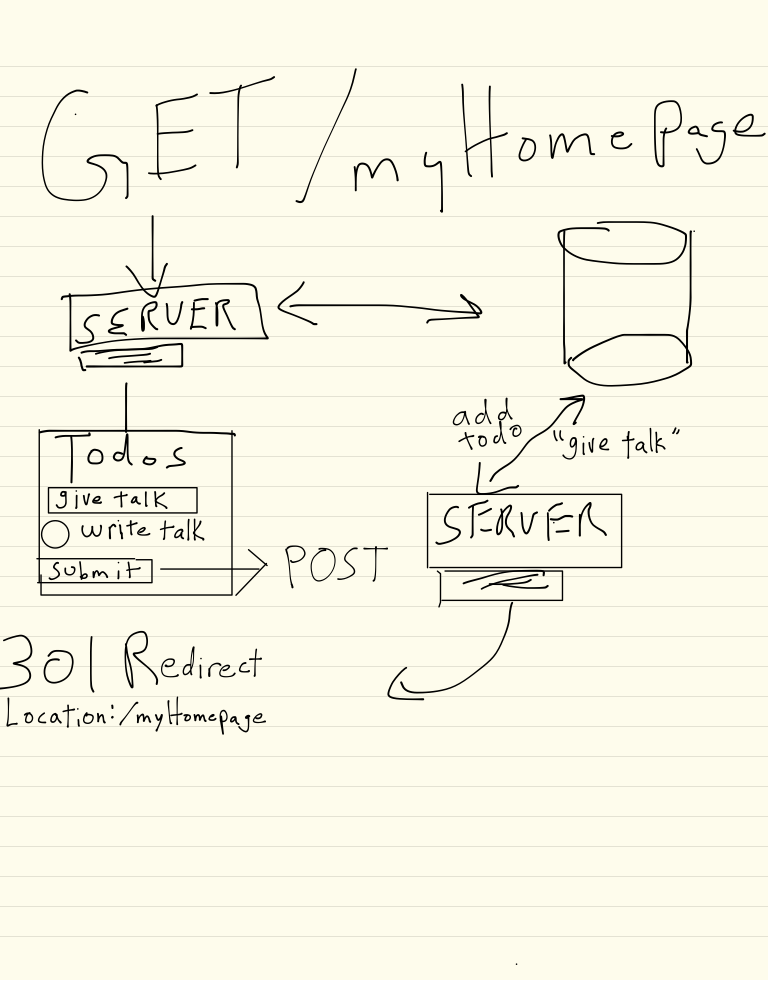 GET /myHomePage
SERVER
Todos
give talk
write talk
submit
POST
add
todo
"give talk"
SERVER
301 Redirect
Location:/myHomepage